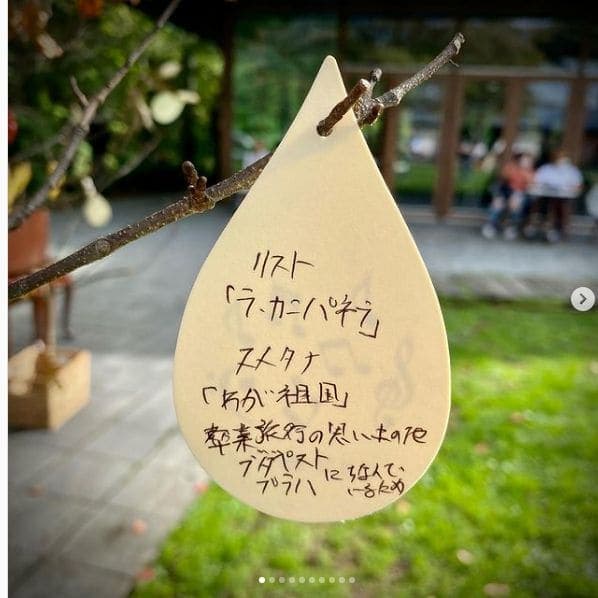 リスト
「ラ・カンパネラ」
スメタナ
「わが祖国」
卒業旅行の思い出の地
ブダペスト
プラハ
にちなんで
いるため